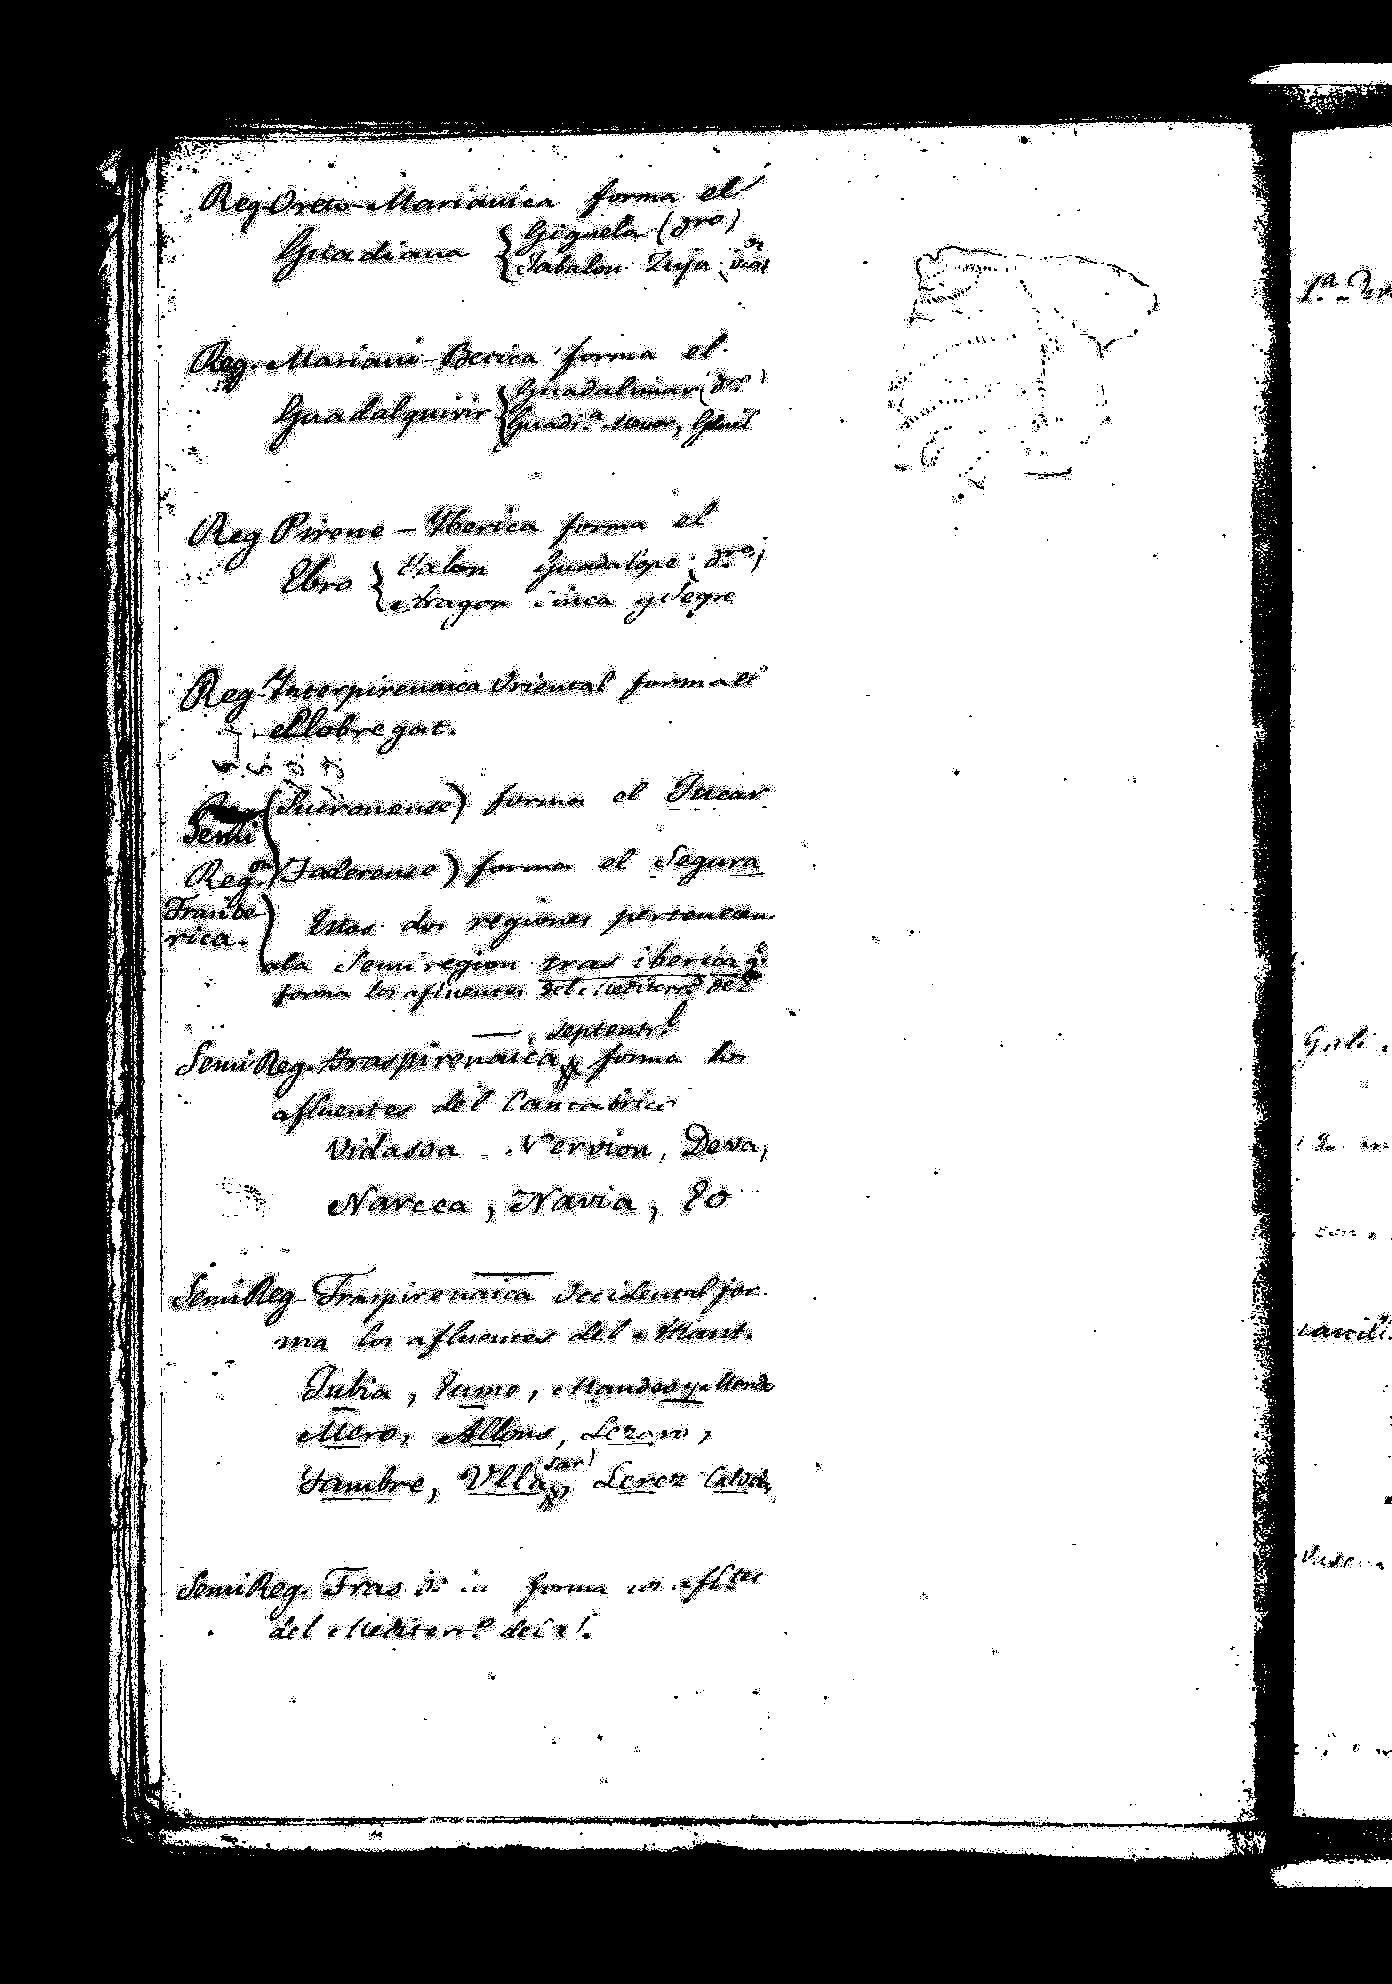 Reg. Oreto-Marianica forma el
Guadiana { Giguela (dro)
Jabalon Zuja
Reg. Mariani-Betica forma el
Guadalquivir { Guadalimar (dro)
Guadi.ª menor, Genil
Reg Pirene-Yberica forma el
Ebro { Jalon Guadalope dro,
Aragon Cinca y Segre
Reg. Interpirenaica Oriental forma el
Llobregat.
Semi (Sucronense) forma el Jucar
Reg.on (Taderense) forma el Segura
Transbe
rica.
Estas dos regiones pertenecen
a la Semiregion tras iberica q.e
forma los afluentes del
septentrl
Semi Reg. Traspirenaica forma los
afluentes del Cantabrico
Vidasoa Nervion, Deva,
Narcea, Navia, Eo
Semi Reg. Traspirenaica Occidental for
ma los afluentes del Atlant.
Jubia, Eume, Mandeo y Mendo
Mero, Allons, Lezaro,
Tambre, Ulla (sar) Lerez Caldelas
Semi Reg. Tras forma los afltes
del Mediterrl